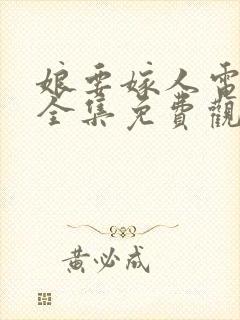 娘要嫁人電
全集免費觀
黃必成